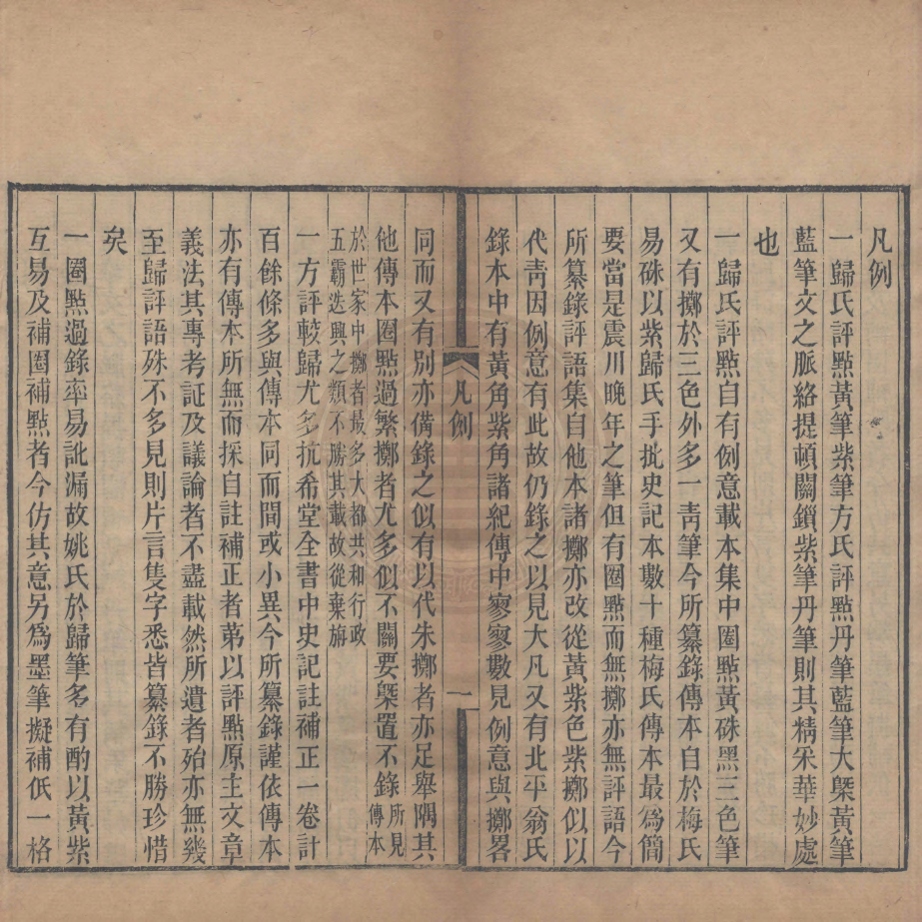 凡例
一歸氏評點黃筆紫筆方氏評點丹筆藍筆大槩黃筆
藍筆文之脈絡提頓關鎖紫筆丹筆則其精采華妙處
也
一歸氏評點自有例意載本集中圈點黃硃黑三色筆
又有擲於三色外多一靑筆今所纂錄傳本自於梅氏
易硃以紫歸氏手批史記本數十種梅氏傳本最爲簡
要當是震川晚年之筆但有圈點而無擲亦無評語今
所纂錄評語集自他本諸擲亦改從黃紫色紫擲似以
代靑因例意有此故仍錄之以見大凡又有北平翁氏
錄本中有黃角紫角諸紀傳中寥寥數見例意與擲畧
凡例
一
同而又有別亦備錄之似有以代朱擲者亦足舉隅其
他傳本圈點過繁擲者尤多似不關要槩置不錄所見傳本
於世家中擲者最多大都共和行政
五霸迭興之類不勝其載故從棄旃
一方評較歸尤多抗希堂全書中史記註補正一卷計
百餘條多與傳本同而間或小異今所纂錄謹依傳本
亦有傳本所無而採自註補正者苐以評點原主文章
義法其專考証及議論者不盡載然所遺者殆亦無幾
至歸評語殊不多見則片言隻字悉皆纂錄不勝珍惜
矣
一圈點過錄率易訛漏故姚氏於歸筆多有酌以黃紫
互易及補圈補點者今仿其意另爲墨筆擬補低一格